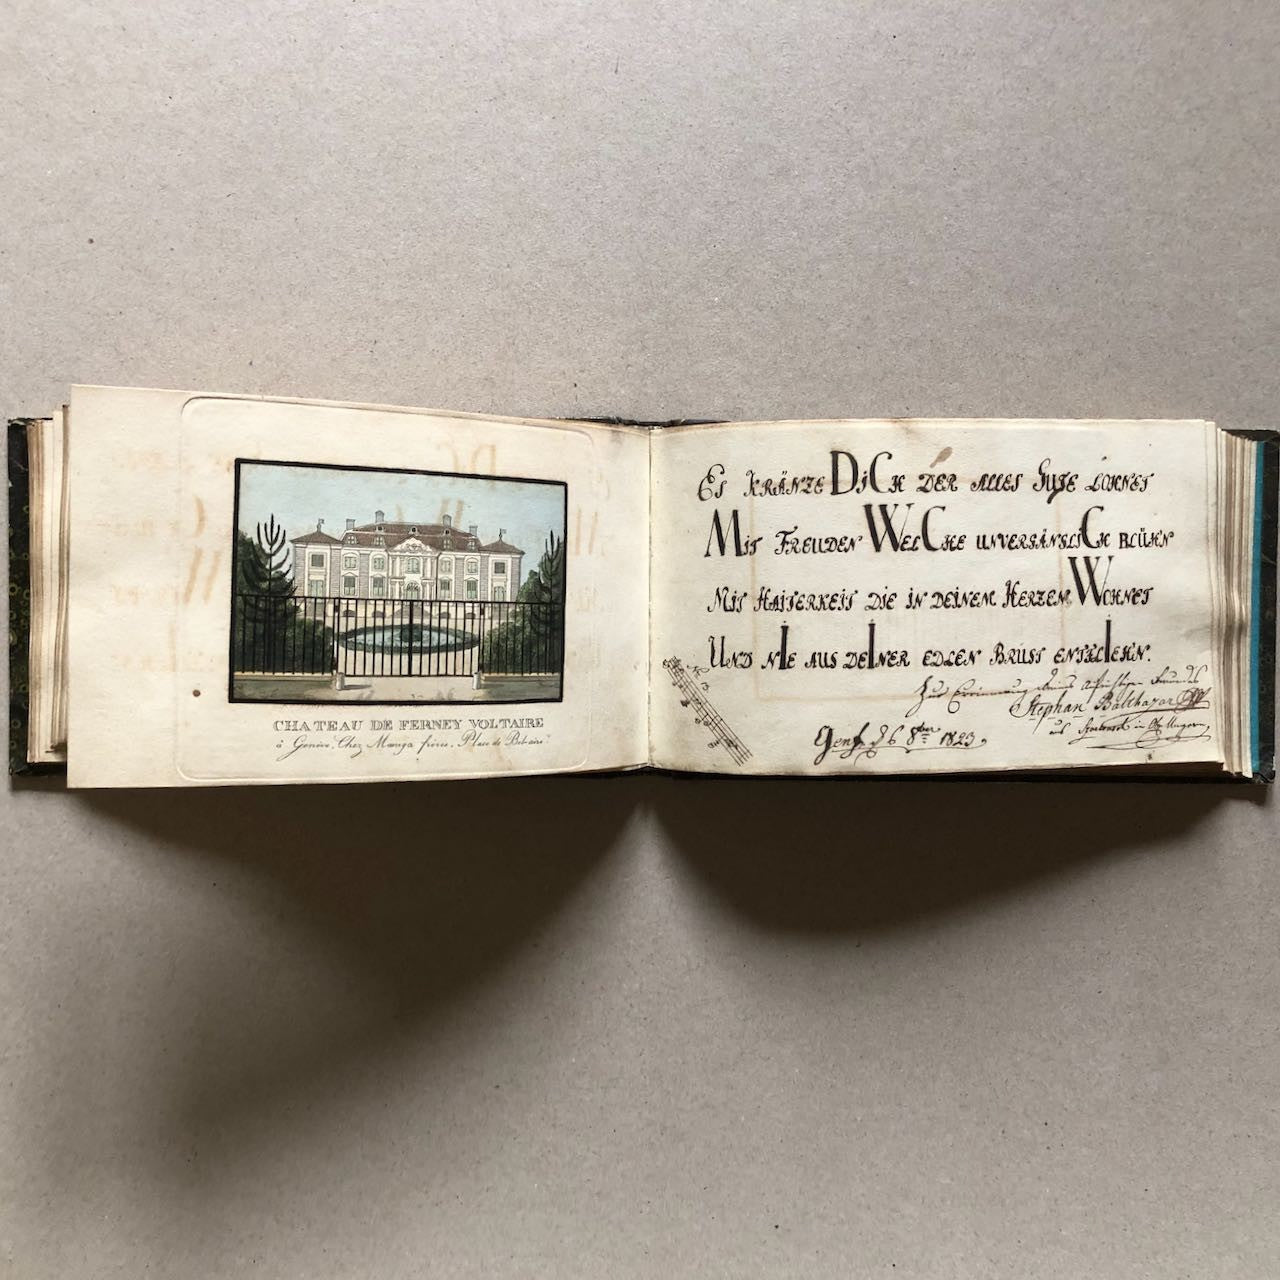 CHATEAU DE FERNEY VOLTAIRE
à Genève, Chez Manga frères, Place de Bel-air
ES KRÄNZE DiCH DER ALLES GUTE LOHNET
MIT FREUDEN WELCHE UNVERGÄNGLiCH BLÜHN
MIT HAITERKEIT DIE IN DEINEM HERZEN WOHNET
UND NIE AUS DEINER EDLEN BRUST ENTFLIEHN.
Zur Erinnerung aufrichtigen Freundes
Stephan Balthazar
aus in Ob. Ungarn
Genf d 6 8ber 1823.